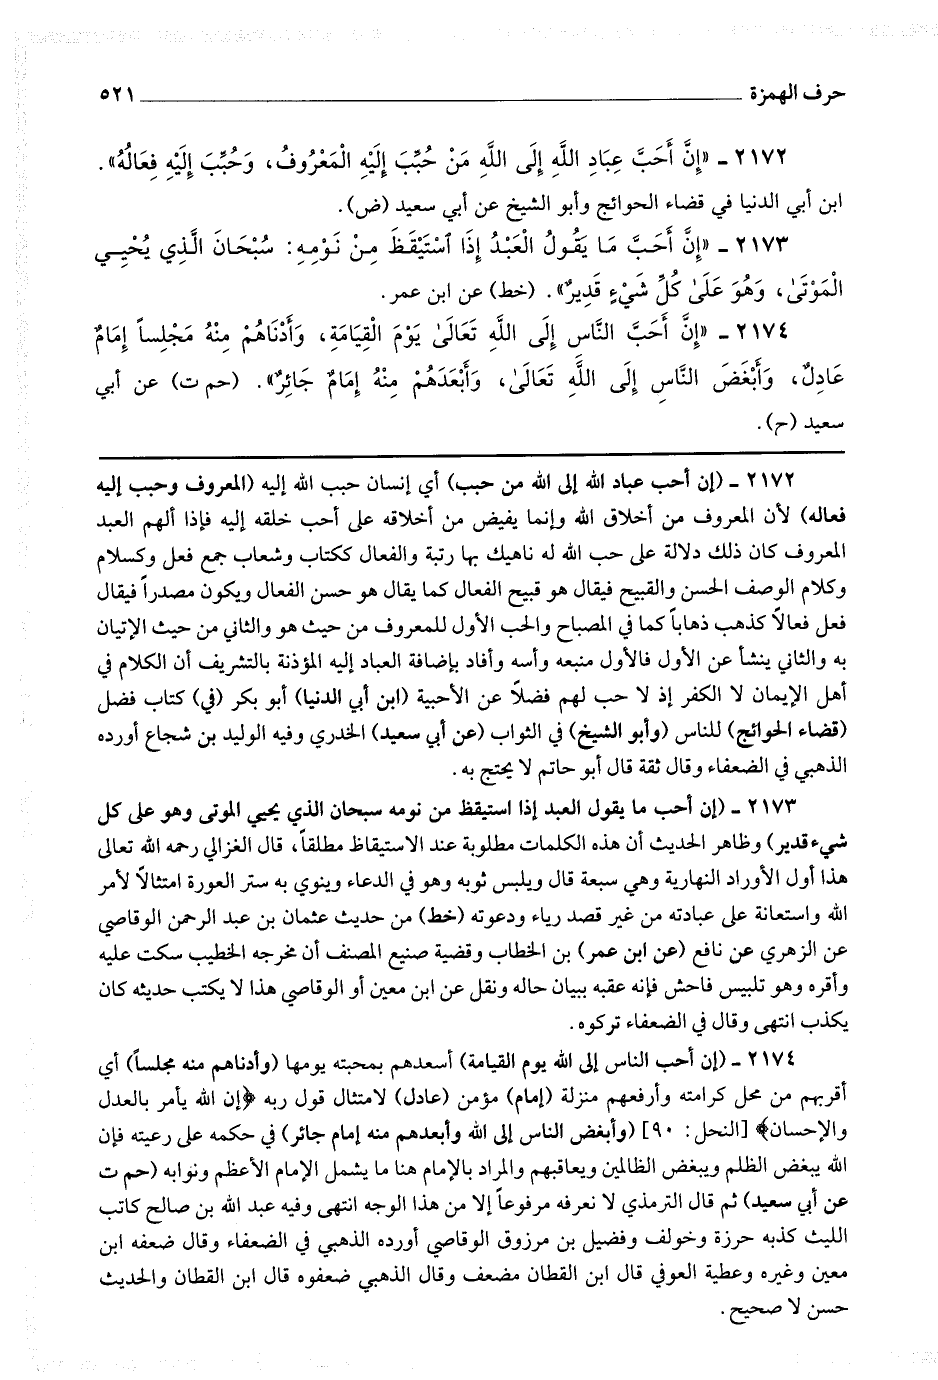 حرف الهمزة ٥٢١
٢١٧٢ ـ «إِنَّ أَحَبَّ عِبَادِ اللَّهِ إِلَى اللَّهِ مَنْ حُبِّبَ إِلَيْهِ الْمَعْرُوفُ، وَحُبِّبَ إِلَيْهِ فِعَالُهُ».
ابن أبي الدنيا في قضاء الحوائج وأبو الشيخ عن أبي سعيد (ض).
٢١٧٣ ـ «إِنَّ أَحَبَّ مَا يَقُولُ الْعَبْدُ إِذَا ٱسْتَيْقَظَ مِنْ نَوْمِهِ: سُبْحَانَ الَّذِي يُحْيِي
الْمَوْتَىٰ، وَهُوَ عَلَىٰ كُلِّ شَيْءٍ قَدِيرٌ». (خط) عن ابن عمر.
٢١٧٤ ـ «إِنَّ أَحَبَّ النَّاسِ إِلَى اللَّهِ تَعَالَىٰ يَوْمَ الْقِيَامَةِ، وَأَدْنَاهُمْ مِنْهُ مَجْلِساً إِمَامٌ
عَادِلٌ، وَأَبْغَضَ النَّاسِ إِلَى اللَّهِ تَعَالَىٰ، وَأَبْعَدَهُمْ مِنْهُ إِمَامٌ جَائِرٌ». (حم ت) عن أبي
سعيد (ح).
٢١٧٢ ـ (إن أحب عباد الله إلى الله من حبب) أي إنسان حبب الله إليه (المعروف وحبب إليه
فعاله) لأن المعروف من أخلاق الله وإنما يفيض من أخلاقه على أحب خلقه إليه فإذا ألهم العبد
المعروف كان ذلك دلالة على حب الله له ناهيك بها رتبة والفعال ككتاب وشعاب جمع فعل وكسلام
وكلام الوصف الحسن والقبيح فيقال هو قبيح الفعال كما يقال هو حسن الفعال ويكون مصدراً فيقال
فعل فعالاً كذهب ذهاباً كما في المصباح والحب الأول للمعروف من حيث هو والثاني من حيث الإتيان
به والثاني ينشأ عن الأول فالأول منبعه وأسه وأفاد بإضافة العباد إليه المؤذنة بالتشريف أن الكلام في
أهل الإيمان لا الكفر إذ لا حب لهم فضلاً عن الأحبية (ابن أبي الدنيا) أبو بكر (في) كتاب فضل
(قضاء الحوائج) للناس (وأبو الشيخ) في الثواب (عن أبي سعيد) الخدري وفيه الوليد بن شجاع أورده
الذهبي في الضعفاء وقال ثقة قال أبو حاتم لا يحتج به.
٢١٧٣ ـ (إن أحب ما يقول العبد إذا استيقظ من نومه سبحان الذي يحيي الموتى وهو على كل
شيء قدير) وظاهر الحديث أن هذه الكلمات مطلوبة عند الاستيقاظ مطلقاً، قال الغزالي رحمه الله تعالى
هذا أول الأوراد النهارية وهي سبعة قال ويلبس ثوبه وهو في الدعاء وينوي به ستر العورة امتثالاً لأمر
الله واستعانة على عبادته من غير قصد رياء ودعوته (خط) من حديث عثمان بن عبد الرحمن الوقاصي
عن الزهري عن نافع (عن ابن عمر) بن الخطاب وقضية صنيع المصنف أن مخرجه الخطيب سكت عليه
وأقره وهو تلبيس فاحش فإنه عقبه ببيان حاله ونقل عن ابن معين أو الوقاصي هذا لا يكتب حديثه كان
يكذب انتهى وقال في الضعفاء تركوه.
٢١٧٤ ـ (إن أحب الناس إلى الله يوم القيامة) أسعدهم بمحبته يومها (وأدناهم منه مجلساً) أي
أقربهم من محل كرامته وأرفعهم منزلة (إمام) مؤمن (عادل) لامتثال قول ربه ﴿إن الله يأمر بالعدل
والإحسان﴾ [النحل: ٩٠] (وأبغض الناس إلى الله وأبعدهم منه إمام جائر) في حكمه على رعيته فإن
الله يبغض الظلم ويبغض الظالمين ويعاقبهم والمراد بالإمام هنا ما يشمل الإمام الأعظم ونوابه (حم ت
عن أبي سعيد) ثم قال الترمذي لا نعرفه مرفوعاً إلا من هذا الوجه انتهى وفيه عبد الله بن صالح كاتب
الليث كذبه حرزة وخولف وفضيل بن مرزوق الوقاصي أورده الذهبي في الضعفاء وقال ضعفه ابن
معين وغيره وعطية العوفي قال ابن القطان مضعف وقال الذهبي ضعفوه قال ابن القطان والحديث
حسن لا صحيح.